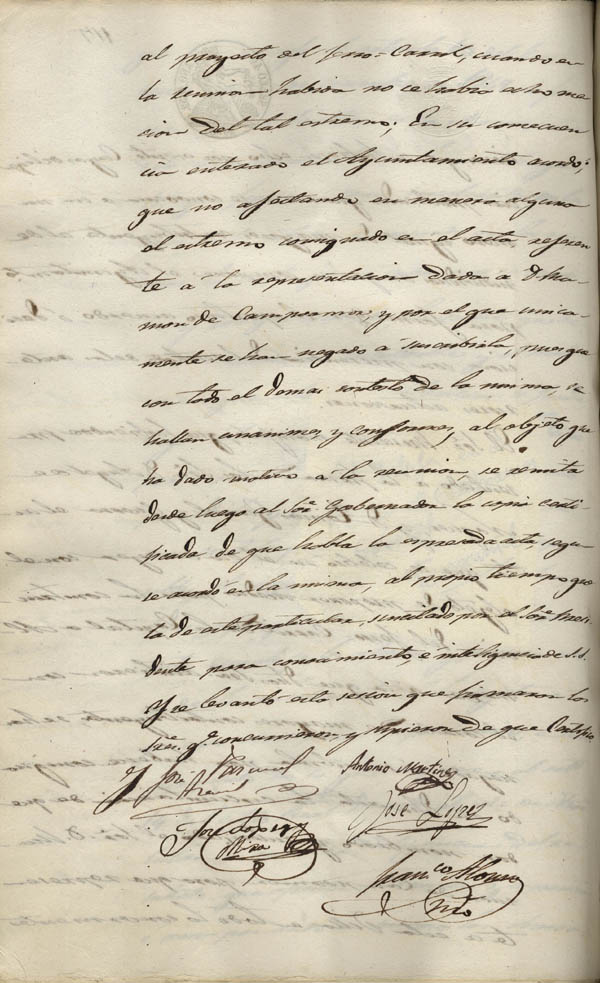 al proyecto del ferro-Carril, cuando en
la reunion habida no se habia echo men
cion del tal estremo; En su consecuen
cia enterado el Ayuntamiento acordó;
que no afectando en manera alguna
el estremo consignado en el acta referen
te á la representacion dada a D. Ra-
mon de Campoamor, y por el que unica-
mente se han negado á suscribirla, pues que
con todo el demas contesto de la misma, se
hallan unanimes, y conformes, al objeto que
ha dado motivo á la reunion, se remita
desde luego al Sor. Gobernador la copia certi-
ficada de que habla la espresada acta, segun
se acordó en la misma, al propio tiempo que
la de este particular, por el Sor. Presi-
dente para conocimiento, é inteligencia de S.S.
Y se levantó esta sesion que firmaron los
Sres. q. concurrieron, y supieron de que Certifico
José Pascual
Antonio Martinez
José Lopez
José Lopez
Mira
Franco
Srio